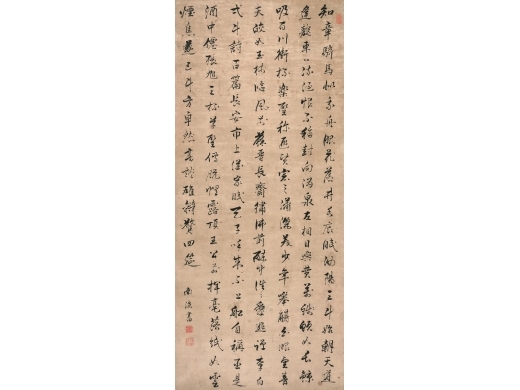 知章騎馬似乘船眼花落井水底眠汝陽三斗始朝天道
逢麴車口流涎恨不移封向酒泉左相日興費萬錢飲如長鯨
吸百川銜杯樂聖稱避賢宗之瀟灑美少年舉觴白眼望青
天皎如玉樹臨風前蘇晉長齋繡佛前醉中往往愛逃禪李白
一斗詩百篇長安市上酒家眠天子呼來不上船自稱臣是
酒中僊張旭三杯草聖傳脫帽露頂王公前揮毫落紙如雲
煙焦遂五斗方卓然高談雄辯驚四筵
南 書